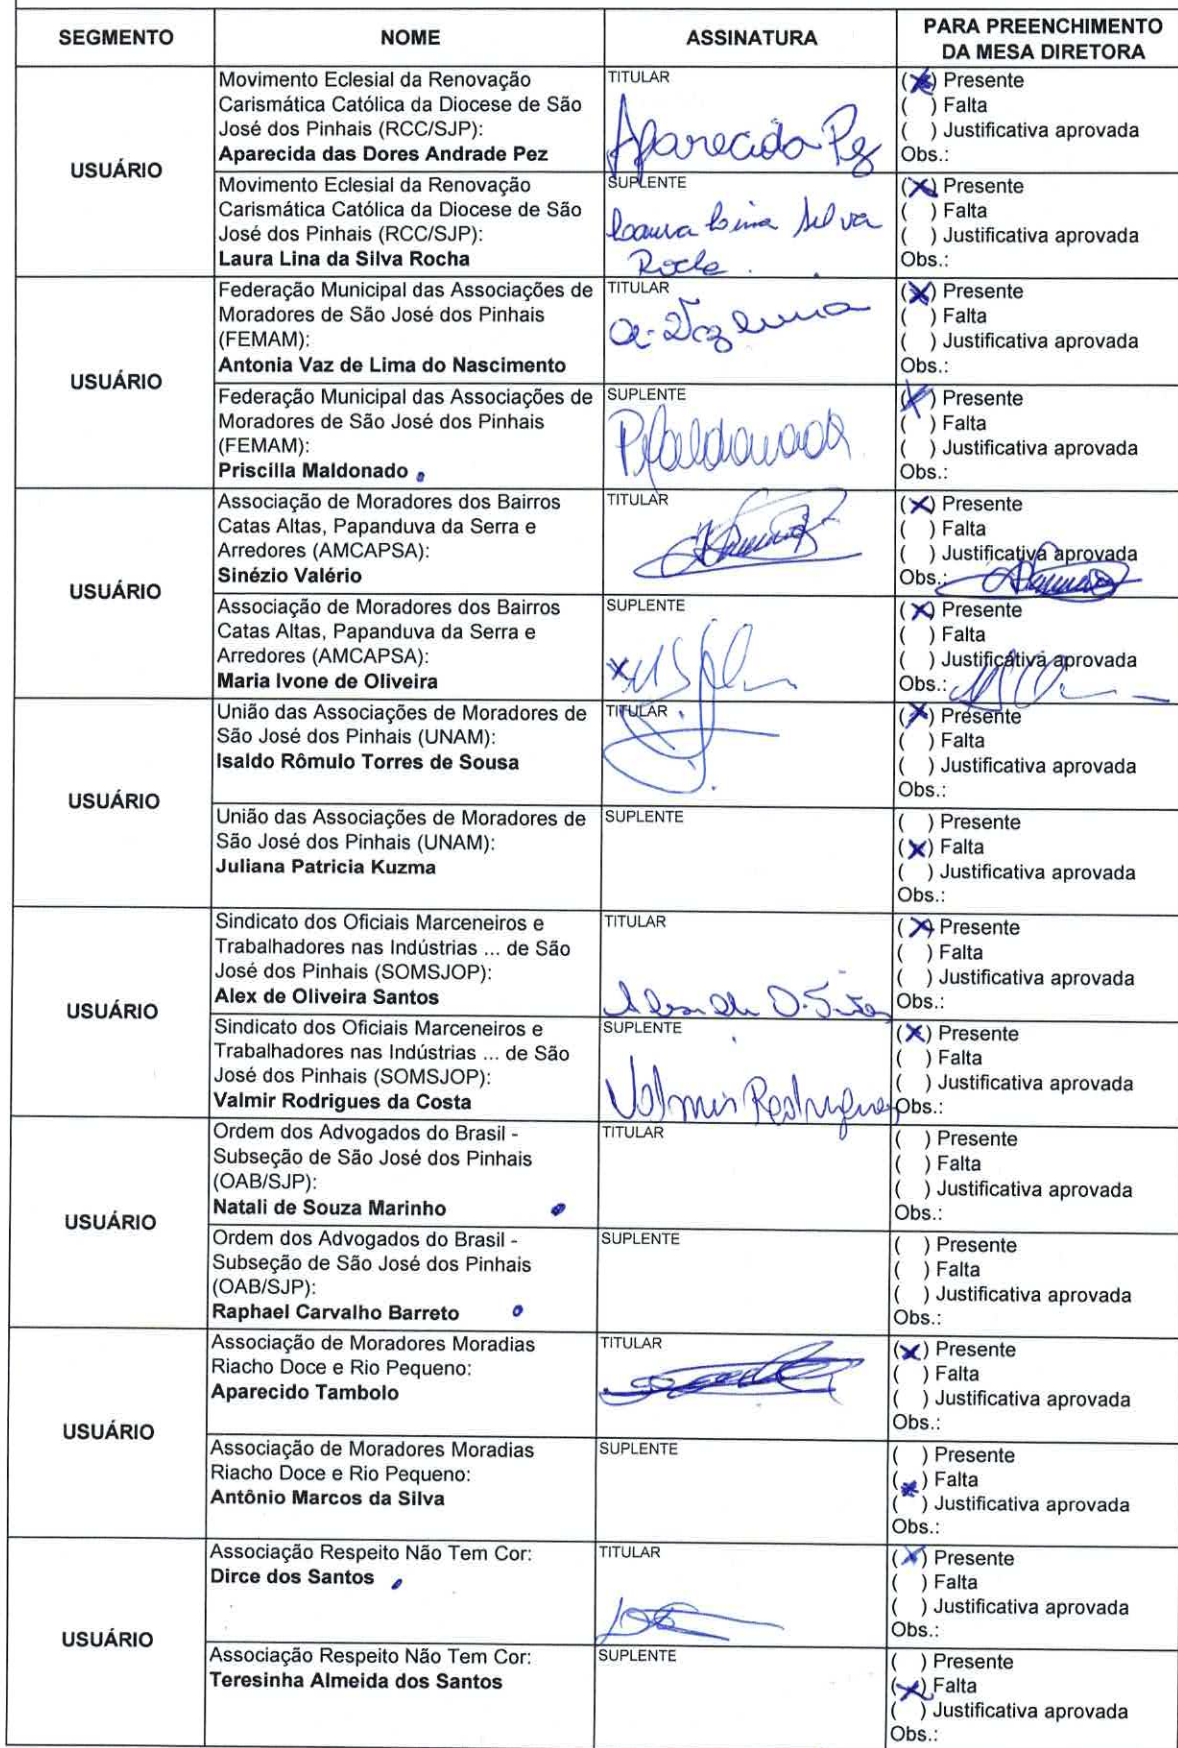 SEGMENTO
NOME
ASSINATURA
PARA PREENCHIMENTO
DA MESA DIRETORA
USUÁRIO
Movimento Eclesial da Renovação
Carismática Católica da Diocese de São
José dos Pinhais (RCC/SJP):
Aparecida das Dores Andrade Pez
TITULAR
Aparecida Pez
(X) Presente
( ) Falta
( ) Justificativa aprovada
Obs.:
Movimento Eclesial da Renovação
Carismática Católica da Diocese de São
José dos Pinhais (RCC/SJP):
Laura Lina da Silva Rocha
SUPLENTE
Laura Lina Silva
Rocha
(X) Presente
( ) Falta
( ) Justificativa aprovada
Obs.:
USUÁRIO
Federação Municipal das Associações de
Moradores de São José dos Pinhais
(FEMAM):
Antonia Vaz de Lima do Nascimento
TITULAR
a. Vaz Lima
(X) Presente
( ) Falta
( ) Justificativa aprovada
Obs.:
Federação Municipal das Associações de
Moradores de São José dos Pinhais
(FEMAM):
Priscilla Maldonado
SUPLENTE
PMaldonado
(X) Presente
( ) Falta
( ) Justificativa aprovada
Obs.:
USUÁRIO
Associação de Moradores dos Bairros
Catas Altas, Papanduva da Serra e
Arredores (AMCAPSA):
Sinézio Valério
TITULAR
(X) Presente
( ) Falta
( ) Justificativa aprovada
Obs.:
Associação de Moradores dos Bairros
Catas Altas, Papanduva da Serra e
Arredores (AMCAPSA):
Maria Ivone de Oliveira
SUPLENTE
(X) Presente
( ) Falta
( ) Justificativa aprovada
Obs.:
USUÁRIO
União das Associações de Moradores de
São José dos Pinhais (UNAM):
Isaldo Rômulo Torres de Sousa
TITULAR
(X) Presente
( ) Falta
( ) Justificativa aprovada
Obs.:
União das Associações de Moradores de
São José dos Pinhais (UNAM):
Juliana Patricia Kuzma
SUPLENTE
( ) Presente
(X) Falta
( ) Justificativa aprovada
Obs.:
USUÁRIO
Sindicato dos Oficiais Marceneiros e
Trabalhadores nas Indústrias ... de São
José dos Pinhais (SOMSJOP):
Alex de Oliveira Santos
TITULAR
(X) Presente
( ) Falta
( ) Justificativa aprovada
Obs.:
Sindicato dos Oficiais Marceneiros e
Trabalhadores nas Indústrias ... de São
José dos Pinhais (SOMSJOP):
Valmir Rodrigues da Costa
SUPLENTE
Valmir Rodrigues
(X) Presente
( ) Falta
( ) Justificativa aprovada
Obs.:
USUÁRIO
Ordem dos Advogados do Brasil -
Subseção de São José dos Pinhais
(OAB/SJP):
Natali de Souza Marinho
TITULAR
( ) Presente
( ) Falta
( ) Justificativa aprovada
Obs.:
Ordem dos Advogados do Brasil -
Subseção de São José dos Pinhais
(OAB/SJP):
Raphael Carvalho Barreto
SUPLENTE
( ) Presente
( ) Falta
( ) Justificativa aprovada
Obs.:
USUÁRIO
Associação de Moradores Moradias
Riacho Doce e Rio Pequeno:
Aparecido Tambolo
TITULAR
(X) Presente
( ) Falta
( ) Justificativa aprovada
Obs.:
Associação de Moradores Moradias
Riacho Doce e Rio Pequeno:
Antônio Marcos da Silva
SUPLENTE
( ) Presente
(X) Falta
( ) Justificativa aprovada
Obs.:
USUÁRIO
Associação Respeito Não Tem Cor:
Dirce dos Santos
TITULAR
(X) Presente
( ) Falta
( ) Justificativa aprovada
Obs.:
Associação Respeito Não Tem Cor:
Teresinha Almeida dos Santos
SUPLENTE
( ) Presente
(X) Falta
( ) Justificativa aprovada
Obs.: